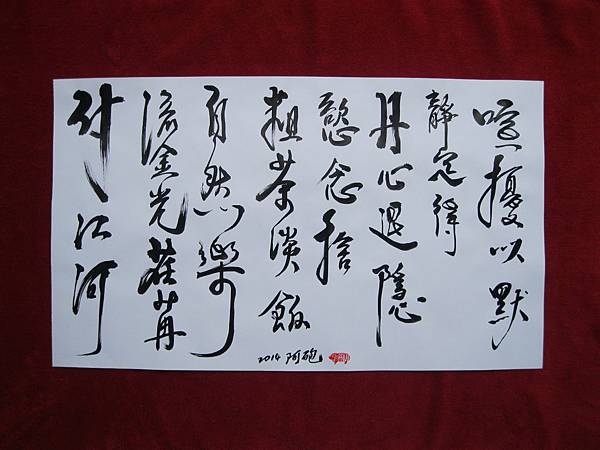 喧擾以默
靜定得
丹心退隱
慾念捨
粗茶淡飯
自然樂
流金光荏苒
付之江河
2014 阿砲